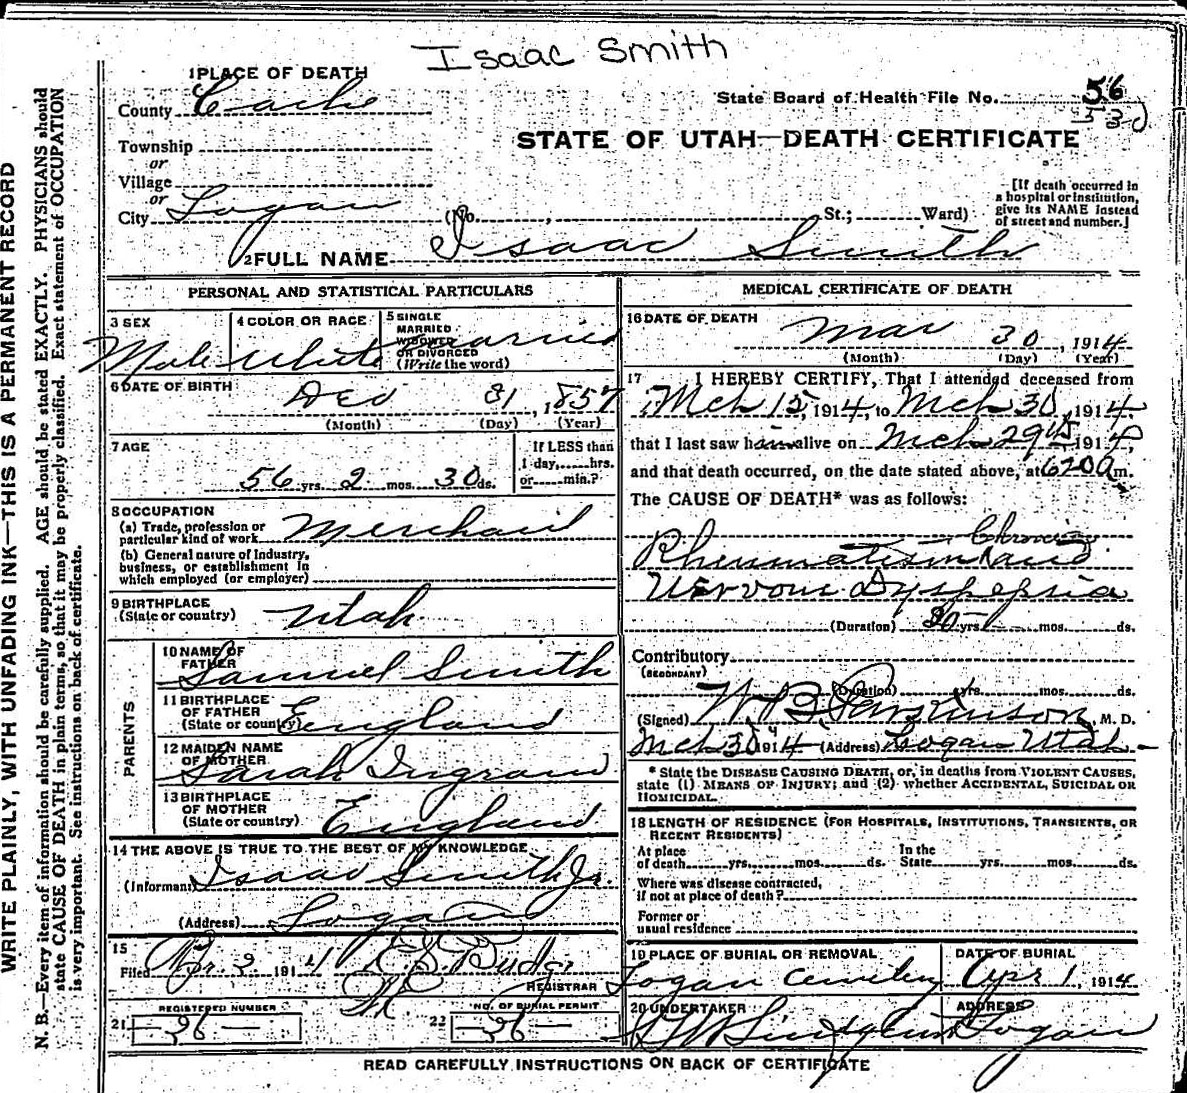 Isaac Smith
1 PLACE OF DEATH
County Cache
State Board of Health File No. 56
STATE OF UTAH—DEATH CERTIFICATE
Township
or
Village
or
City Logan (No. , St.; Ward)
[If death occurred in
a hospital or institution,
give its NAME instead
of street and number.]
2 FULL NAME Isaac Smith
PERSONAL AND STATISTICAL PARTICULARS
3 SEX
Male
4 COLOR OR RACE
White
5 SINGLE
MARRIED
WIDOWED
OR DIVORCED
(Write the word)
Married
6 DATE OF BIRTH
Dec 31, 1857
(Month) (Day) (Year)
7 AGE
56 yrs. 2 mos. 30 ds.
If LESS than
1 day, hrs.
or min.?
8 OCCUPATION
(a) Trade, profession or
particular kind of work Merchant
(b) General nature of Industry,
business, or establishment in
which employed (or employer)
9 BIRTHPLACE
(State or country) Utah
PARENTS
10 NAME OF
FATHER
Samuel Smith
11 BIRTHPLACE
OF FATHER
(State or country) England
12 MAIDEN NAME
OF MOTHER
Sarah Ingram
13 BIRTHPLACE
OF MOTHER
(State or country) England
14 THE ABOVE IS TRUE TO THE BEST OF MY KNOWLEDGE
(Informant) Isaac Smith Jr.
(Address) Logan
15
Filed Apr. 2 1914 Budge
REGISTRAR
REGISTERED NUMBER
21 36
NO. OF BURIAL PERMIT
22 36
MEDICAL CERTIFICATE OF DEATH
16 DATE OF DEATH
Mar 30, 1914
(Month) (Day) (Year)
17 I HEREBY CERTIFY, That I attended deceased from
Mch 15, 1914, to Mch 30, 1914,
that I last saw him alive on Mch 29th 1914,
and that death occurred, on the date stated above, at 620 a m.
The CAUSE OF DEATH* was as follows:
Chronic
Rheumatism and
Nervous Dyspepsia
(Duration) yrs. mos. ds.
Contributory
(SECONDARY)
(Duration) yrs. mos. ds.
(Signed) W B Parkinson, M. D.
Mch 30 1914 (Address) Logan Utah
* State the DISEASE CAUSING DEATH, or, in deaths from VIOLENT CAUSES,
state (1) MEANS OF INJURY; and (2) whether ACCIDENTAL, SUICIDAL OR
HOMICIDAL.
18 LENGTH OF RESIDENCE (FOR HOSPITALS, INSTITUTIONS, TRANSIENTS, OR
RECENT RESIDENTS)
At place
of death yrs. mos. ds.
In the
State yrs. mos. ds.
Where was disease contracted,
if not at place of death?
Former or
usual residence
19 PLACE OF BURIAL OR REMOVAL
Logan Cemetery
DATE OF BURIAL
Apr 1, 1914
20 UNDERTAKER
ADDRESS
Logan
READ CAREFULLY INSTRUCTIONS ON BACK OF CERTIFICATE
WRITE PLAINLY, WITH UNFADING INK—THIS IS A PERMANENT RECORD
N. B.—Every item of information should be carefully supplied. AGE should be stated EXACTLY. PHYSICIANS should
state CAUSE OF DEATH in plain terms, so that it may be properly classified. Exact statement of OCCUPATION
is very important. See instructions on back of certificate.